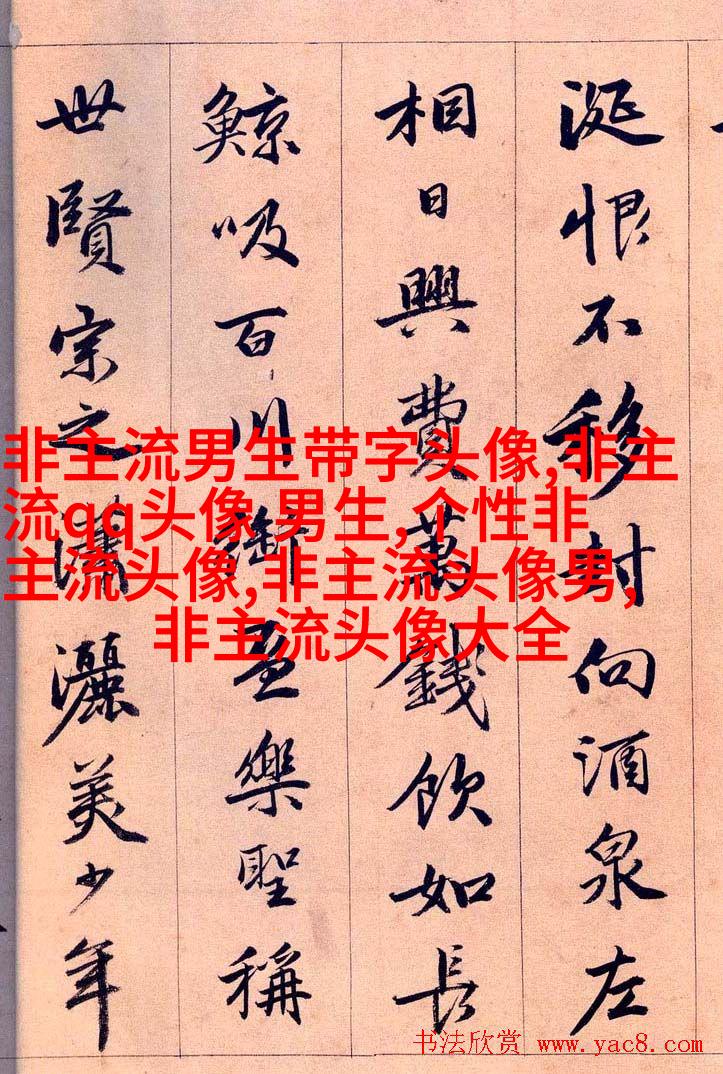 涎恨不移封向酒泉左
相日興費萬錢飲如長
鯨吸百川銜盃樂聖稱
世賢宗之瀟灑美少年
非主流男生带字头像,非主
流qq头像 男生,个性非
主流头像,非主流头像男,
非主流头像大全
书法欣赏 www.yac8.com